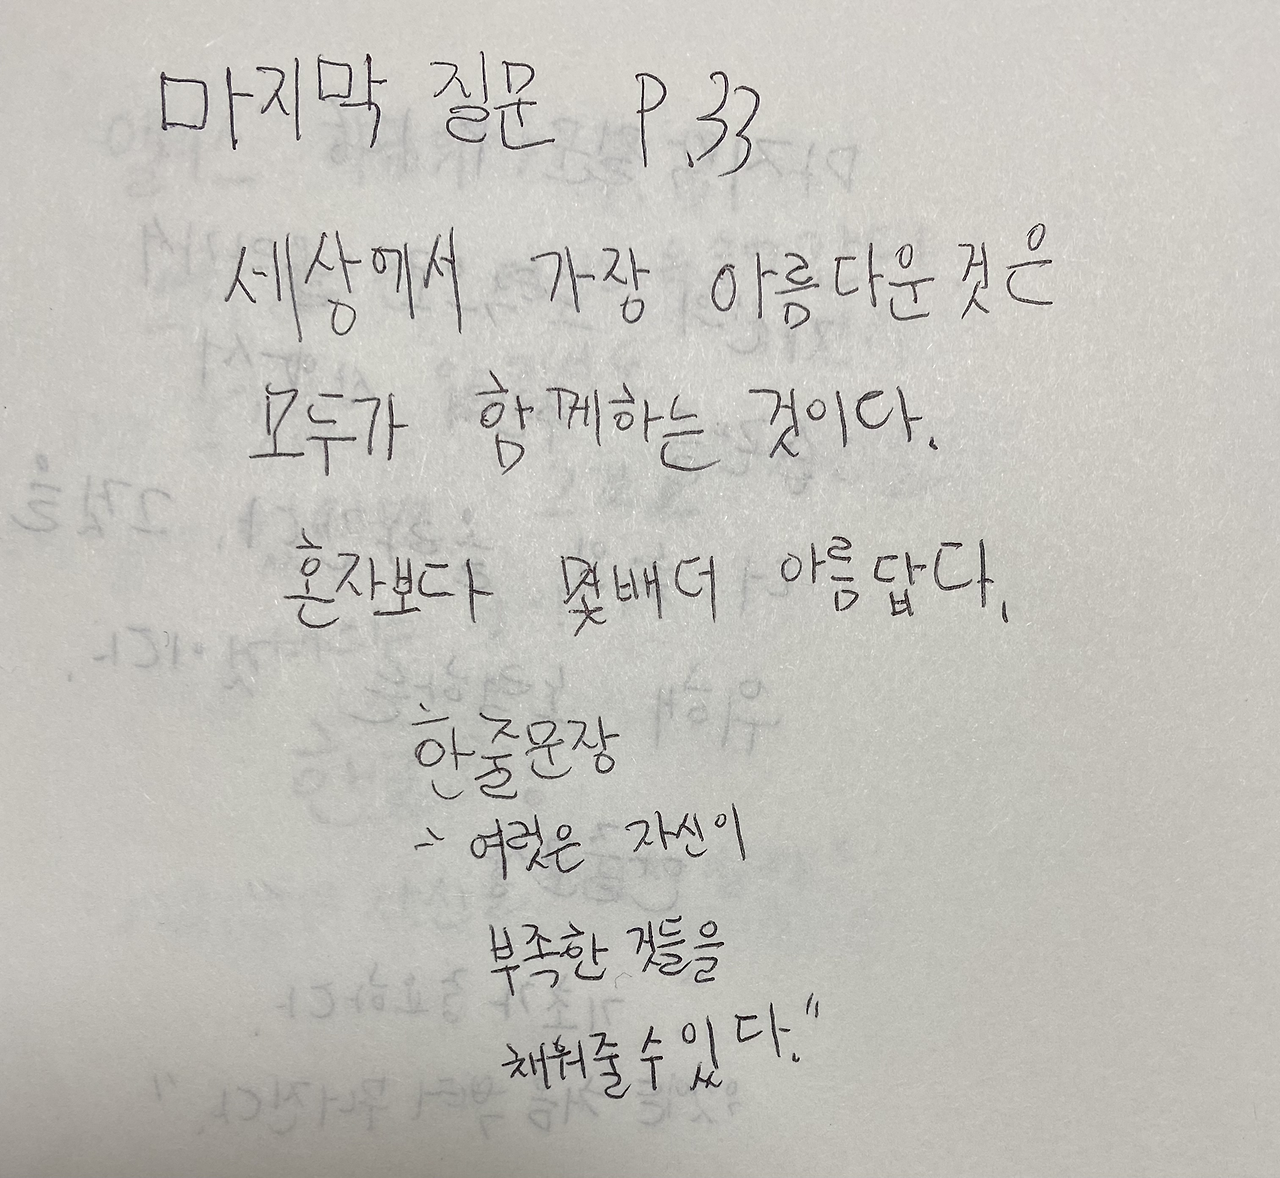 마지막 질문 P.33
세상에서 가장 아름다운것은
모두가 함께하는 것이다.
혼자보다 몇배더 아름답다.
한줄문장
" 여럿은 자신이
부족한 것들을
채워줄수있다."